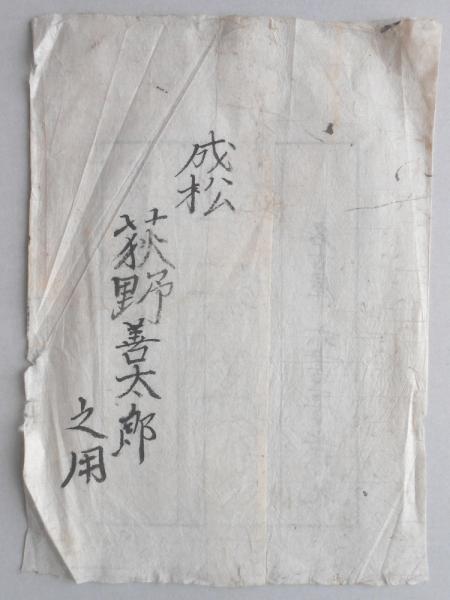 成松
荻野善太郎
之用